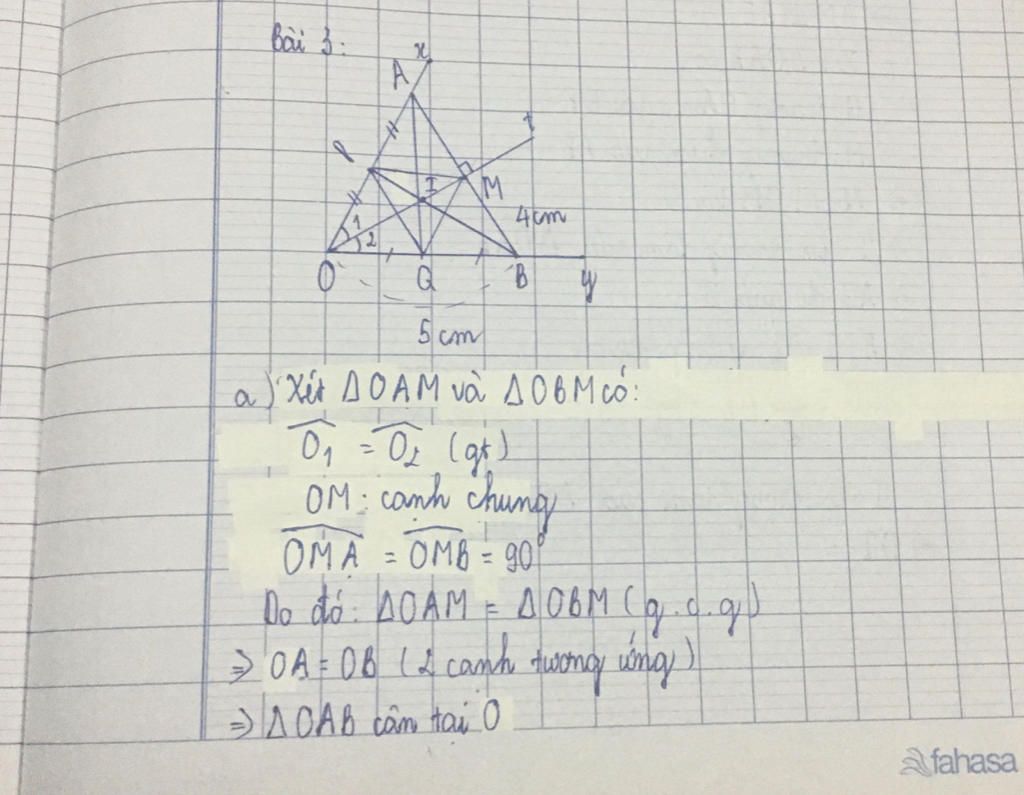 Bài 3:
x
A
t
P
I
M
1
2
4cm
O
Q
B
y
5 cm
a) Xét ΔOAM và ΔOBM có:
Ô₁ = Ô₂ (gt)
OM : cạnh chung
OMA = OMB = 90°
Do đó: ΔOAM = ΔOBM (g.c.g)
⇒ OA = OB (2 cạnh tương ứng)
⇒ ΔOAB cân tại O
fahasa